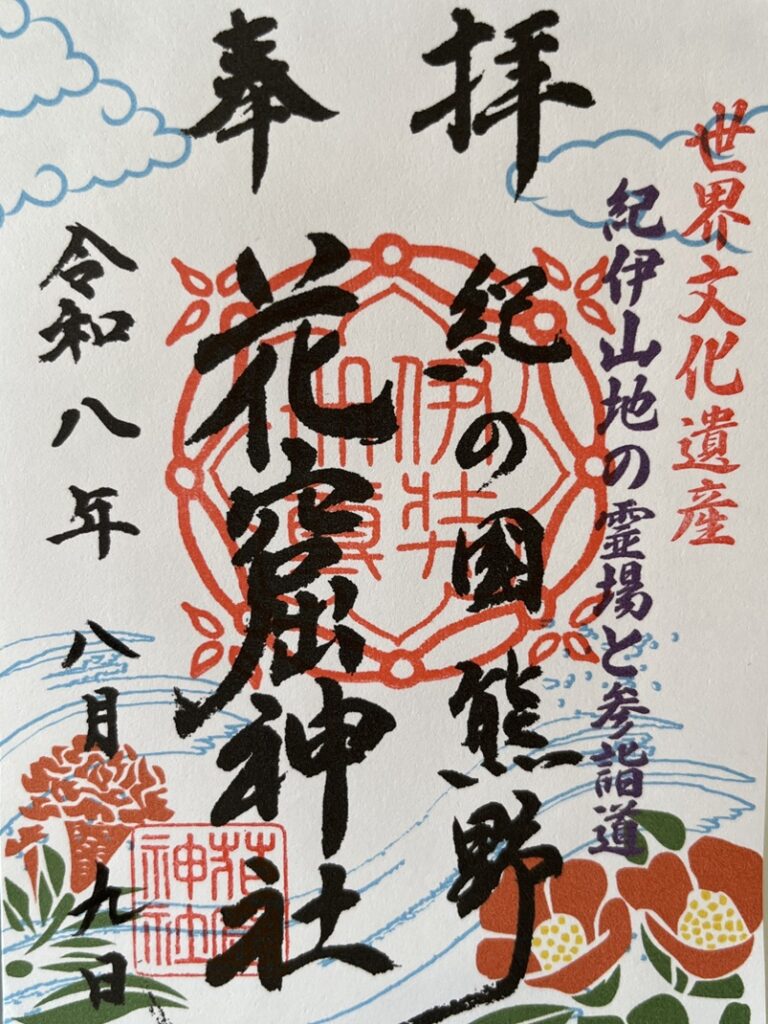 奉拝
世界文化遺産
紀伊山地の霊場と参詣道
紀の国熊野
花窟神社
令和八年八月九日
伊弉
花窟
神社